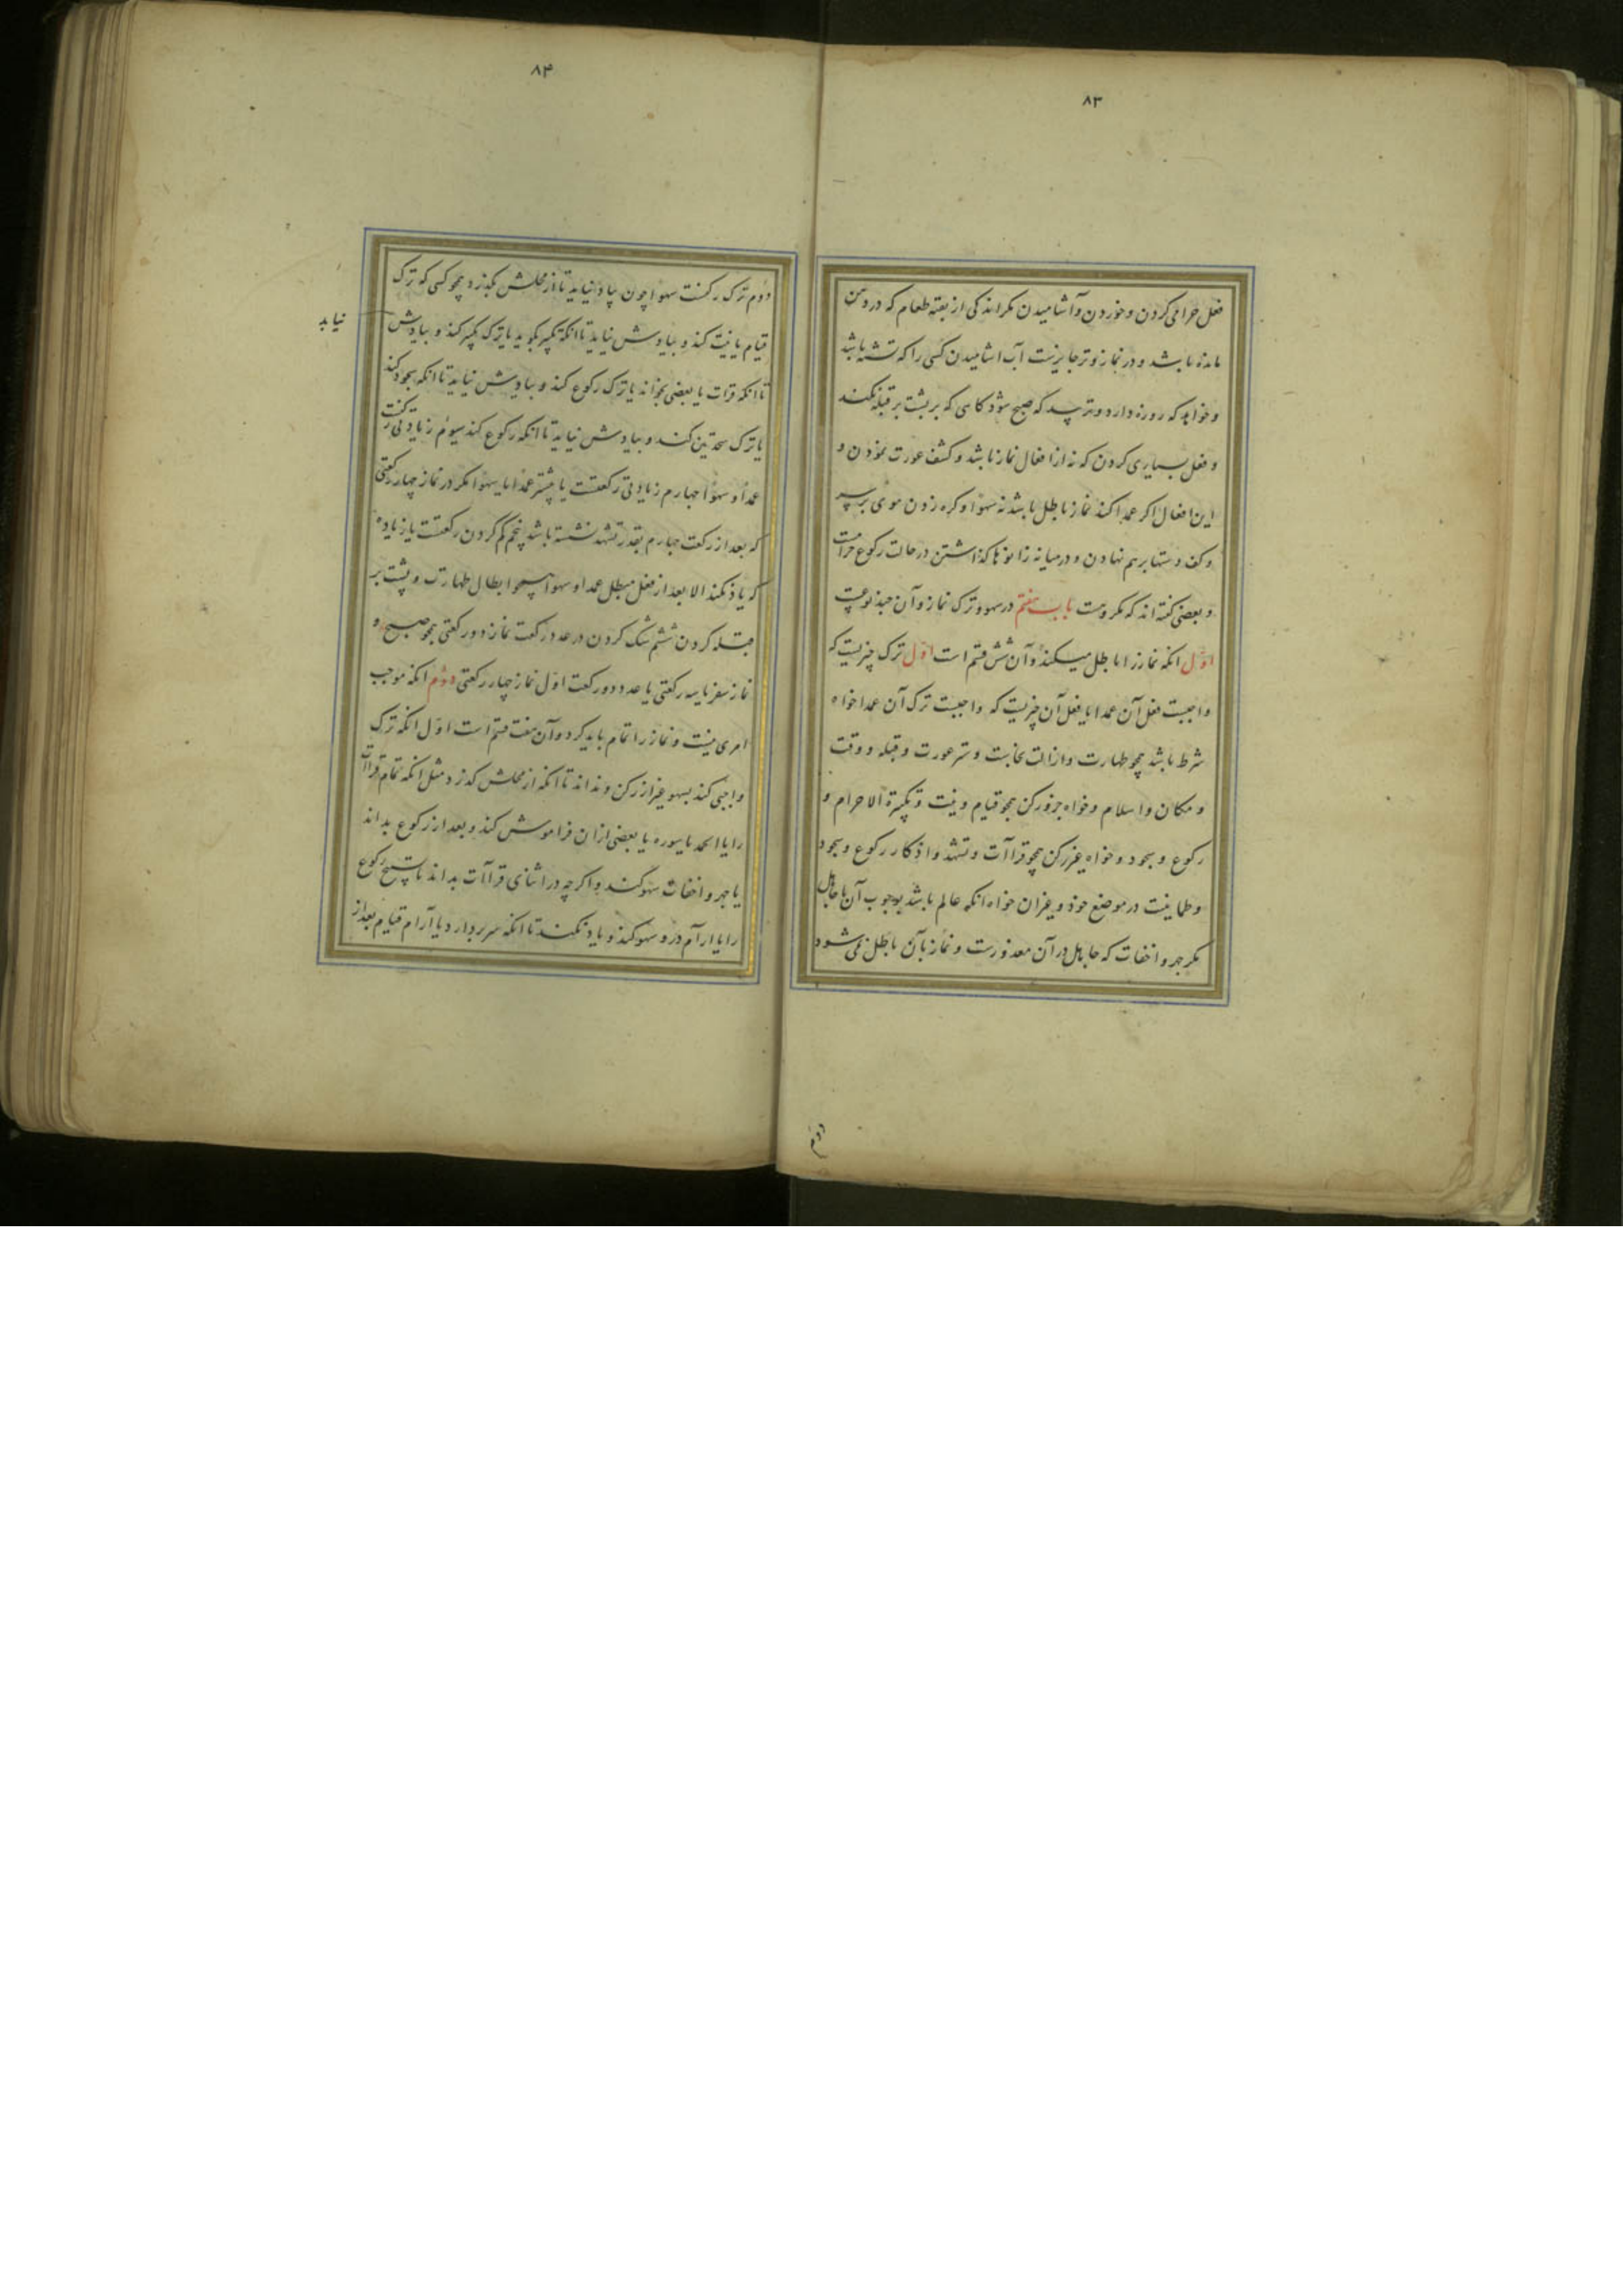 ۸۳
فعل حرامی کردن و خوردن و آشامیدن مکر اندکی از بقیه طعام که در دهن
مانده باشد و در نماز وتر جایزست آب اشامیدن کسی را که تشنه باشد
و خواهد که روزه دارد و ترسد که صبح شود کاسی که بر پشت بر قبله نکند
و فعل بسیاری کردن که نه از افعال نماز باشد و کشف عورت نمودن و
این افعال اکر عمدا کند نماز باطل باشد نه سهوا و کره زدن موی بر سر
و کف دستها بر هم نهادن و در میانه زانوها کذاشتن در حالت رکوع حرامست
و بعضی کفته اند که مکروهست باب هفتم در سهو و ترک نماز و آن چند نوعست
اول انکه نماز را باطل میکند و آن شش قسم است اول ترک چیزیست که
واجبست فعل آن عمدا یا فعل آن چیزیست که واجبست ترک آن عمدا خواه
شرط باشد همچو طهارت و ازالت نجاست و ستر عورت و قبله و وقت
و مکان و اسلام و خواه جزو رکن همچو قیام و نیت و تکبیرة الاحرام و
رکوع و سجود و خواه غیر رکن همچو قراآت و تشهد و اذکار رکوع و سجود
و طمانینت در موضع خود و غیر ان خواه انکه عالم باشد بوجوب آن یا جاهل
مکر جهر و اخفات که جاهل در آن معذورست و نماز بآن باطل نمی شود
دوم
۸۴
دوم ترک رکنست سهوا چون بیاد نیاید تا از محلش بکذرد همچو کسی که ترک
قیام یا نیت کند و بیادش نیاید تا انکه تکبیر بکوید یا ترک تکبیر کند و بیادش
نیاید
تا انکه قرات یا بعضی بخواند یا ترک رکوع کند و بیادش نیاید تا انکه سجود کند
یا ترک سجدتین کند و بیادش نیاید تا انکه رکوع کند سیوم زیادتی رکنست
عمدا و سهوا چهارم زیادتی رکعتست یا بیشتر عمدا یا سهوا مکر در نماز چهار رکعتی
که بعد از رکعت چهارم بقدر تشهد نشسته باشد پنجم کم کردن رکعتست یا زیاده
که یاد نکند الا بعد از فعل مبطل عمدا و سهوا همچو ابطال طهارت و پشت بر
قبله کردن ششم شک کردن در عدد رکعت نماز دو رکعتی همچو صبح و
نماز سفر یا سه رکعتی یا عدد دو رکعت اول نماز چهار رکعتی دوم انکه موجب
امری نیست و نماز را تمام باید کرد و آن هفت قسم است اول انکه ترک
واجبی کند بسهو غیر از رکن و نداند تا انکه از محلش کذرد مثل انکه تمام قراآت
را یا الحمد یا سوره یا بعضی از ان فراموش کند و بعد از رکوع بداند
یا جهر و اخفات سهو کند و اکرچه در اثنای قراآت بداند یا تسبیح رکوع
را یا آرام درو سهو کند و یاد نکند تا انکه سر بردارد یا آرام قیام بعد از